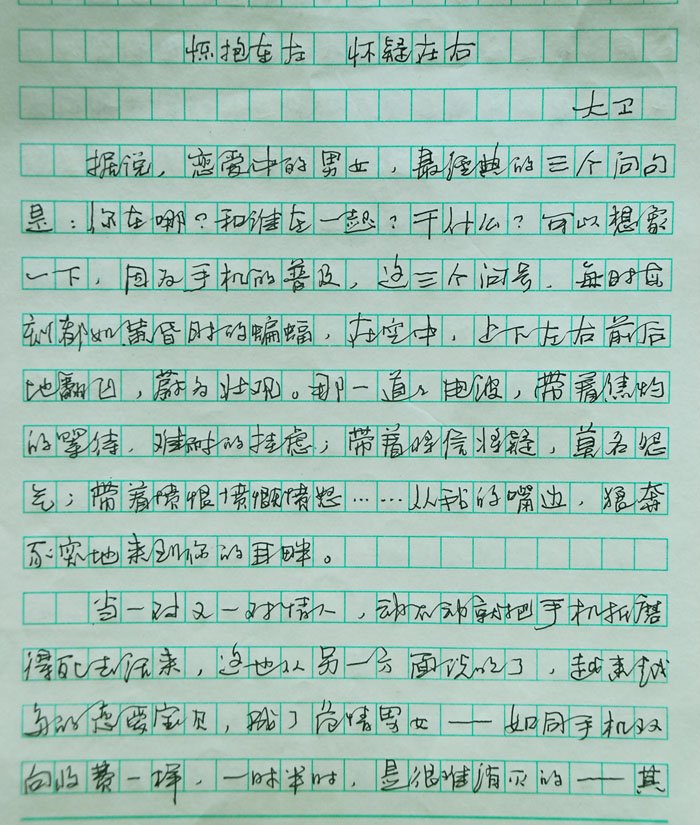 怀抱在左 怀疑在右
大卫
据说，恋爱中的男女，最经典的三个问句
是：你在哪？和谁在一起？干什么？可以想象
一下，因为手机的普及，这三个问号，每时每
刻都如黄昏时的蝙蝠，在空中，上下左右前后
地翻飞，蔚为壮观。那一道道电波，带着焦灼
的等待，难耐的挂虑；带着将信将疑，莫名怨
气；带着愤恨愤慨愤怒……从我的嘴边，狼奔
豕突地来到你的耳畔。
当一对又一对情人，动不动就把手机折磨
得死去活来，这也从另一方面说明了，越来越
多的恋爱宝贝，成了范情男女——如同手机双
向收费一样，一时半时，是很难消灭的——其